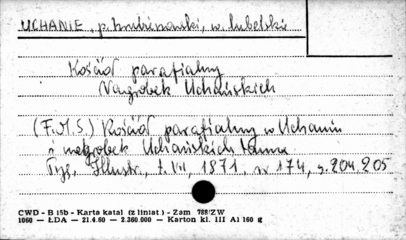 UCHANIE, p. hrubieszowski, w. lubelskie
Kościół parafialny
Nagrobek Uchańskich
(F.M.S.) Kościół parafialny w Uchaniu
i nagrobek Uchańskich
Tyg. Illustr., t. VII, 1871, nr 174, s. 204, 205
CWD - B 15b - Karta katal (z liniat.) - Zam 788/ZW
1060 — ŁDA — 21.4.60 — 2.360.000 — Karton kl. III A1 160 g